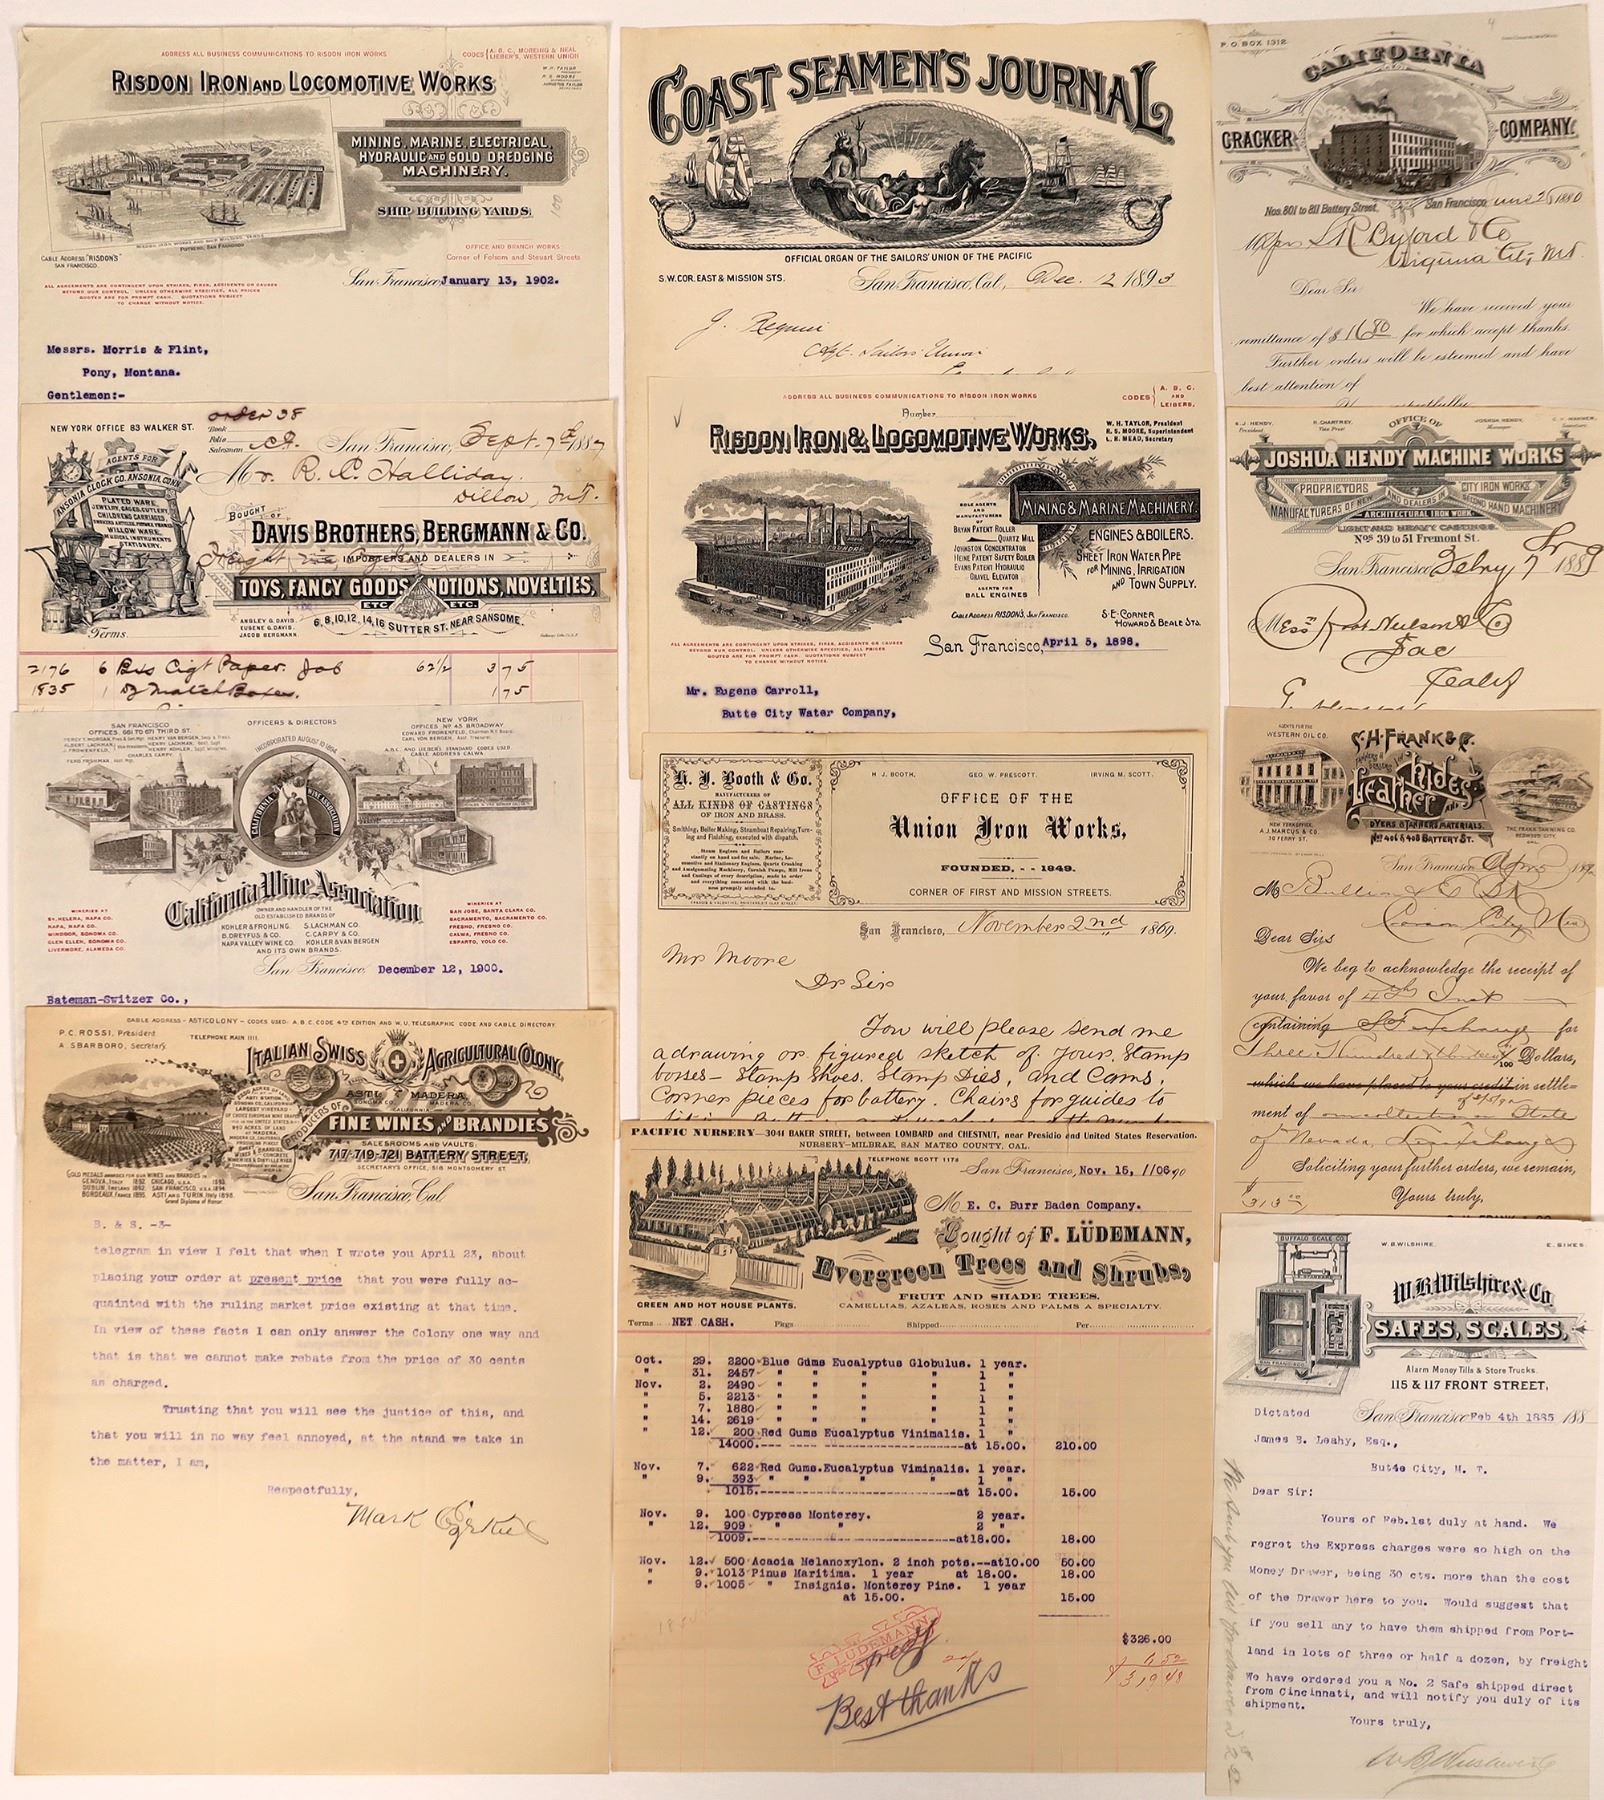 ADDRESS ALL BUSINESS COMMUNICATIONS TO RISDON IRON WORKS
CODES A. B. C., MOREING & NEAL
LIEBER'S, WESTERN UNION
RISDON IRON AND LOCOMOTIVE WORKS
W. H. TAYLOR
R. S. MOORE
MINING, MARINE, ELECTRICAL,
HYDRAULIC AND GOLD DREDGING
MACHINERY.
SHIP BUILDING YARDS.
CABLE ADDRESS "RISDON'S"
SAN FRANCISCO.
OFFICE AND BRANCH WORKS
Corner of Folsom and Steuart Streets
ALL AGREEMENTS ARE CONTINGENT UPON STRIKES, FIRES, ACCIDENTS OR CAUSES
BEYOND OUR CONTROL. UNLESS OTHERWISE SPECIFIED, ALL PRICES
QUOTED ARE FOR PROMPT CASH. QUOTATIONS SUBJECT
TO CHANGE WITHOUT NOTICE.
San Francisco, January 13, 1902.
Messrs. Morris & Flint,
Pony, Montana.
Gentlemen:-
NEW YORK OFFICE 83 WALKER ST.
order 38
Book
Folio
Salesman
San Francisco, Sept. 7th 1887
Mr. R. C. Halliday.
Dillon, M.T.
AGENTS FOR
ANSONIA CLOCK CO. ANSONIA, CONN.
PLATED WARE,
JEWELRY, GAGES, CUTLERY
CHILDRENS CARRIAGES
WILLOW WARE,
MUSICAL INSTRUMENTS
STATIONERY.
BOUGHT OF
DAVIS BROTHERS, BERGMANN & CO.
IMPORTERS AND DEALERS IN
TOYS, FANCY GOODS, NOTIONS, NOVELTIES,
ETC. ETC.
ANDLEY G. DAVIS.
EUGENE G. DAVIS.
JACOB BERGMANN.
6, 8, 10, 12, 14, 16 SUTTER ST. NEAR SANSOME.
Terms.
2176 6 Bxs Cigt Paper. Job 62½ 3 75
1835 1 dz Match Boxes. 1 75
SAN FRANCISCO
OFFICES. 661 TO 671 THIRD ST.
OFFICERS & DIRECTORS
NEW YORK
OFFICES NO. 45 BROADWAY.
PERCY T. MORGAN, Pres & Genl. Mgr.
ALBERT LACHMAN,
J. FROWENFELD,
HENRY VAN BERGEN,
HENRY LACHMAN,
HENRY KOHLER,
CHARLES CARPY.
EDWARD FROWENFELD,
CARL VON BERGEN,
A.B.C. AND LIEBER'S STANDARD CODES USED.
CABLE ADDRESS CALWA.
INCORPORATED AUGUST 10 1894
CALIFORNIA WINE ASSOCIATION
California Wine Association
OWNER AND HANDLER OF THE
OLD ESTABLISHED BRANDS OF
KOHLER & FROHLING. S. LACHMAN CO.
B. DREYFUS & CO. C. CARPY & CO.
NAPA VALLEY WINE CO. KOHLER & VAN BERGEN
AND ITS OWN BRANDS.
WINERIES AT
ST. HELENA, NAPA CO.
NAPA, NAPA CO.
WINDSOR, SONOMA CO.
GLEN ELLEN, SONOMA CO.
LIVERMORE, ALAMEDA CO.
WINERIES AT
SAN JOSE, SANTA CLARA CO.
SACRAMENTO, SACRAMENTO CO.
FRESNO, FRESNO CO.
CALWA, FRESNO CO.
ESPARTO, YOLO CO.
San Francisco December 12, 1900.
Bateman-Switzer Co.,
CABLE ADDRESS - ASTICOLONY - CODES USED: A.B.C. CODE 4TH EDITION AND W.U. TELEGRAPHIC CODE AND CABLE DIRECTORY.
P.C. ROSSI, President
A. SBARBORO, Secretary.
TELEPHONE MAIN 1111.
ITALIAN SWISS AGRICULTURAL COLONY.
ASTI, SONOMA CO. MADERA, MADERA CO.
CALIFORNIA
PRODUCERS OF
FINE WINES AND BRANDIES
SALESROOMS AND VAULTS:
717-719-721 BATTERY STREET,
SECRETARY'S OFFICE, 518 MONTGOMERY ST.
San Francisco, Cal.
GOLD MEDALS AWARDED FOR OUR WINES AND BRANDIES IN
GENOVA, ITALY 1892. CHICAGO, U.S.A. 1893.
DUBLIN, IRELAND 1892. SAN FRANCISCO, U.S.A. 1894.
BORDEAUX, FRANCE 1895. ASTI AND TURIN, Italy 1898.
Grand Diploma of Honor.
B. & S. -3-
telegram in view I felt that when I wrote you April 23, about
placing your order at present price that you were fully ac-
quainted with the ruling market price existing at that time.
In view of these facts I can only answer the Colony one way and
that is that we cannot make rebate from the price of 30 cents
as charged.
Trusting that you will see the justice of this, and
that you will in no way feel annoyed, at the stand we take in
the matter, I am,
Respectfully,
Mark
COAST SEAMEN'S JOURNAL
OFFICIAL ORGAN OF THE SAILORS' UNION OF THE PACIFIC
S.W. COR. EAST & MISSION STS.
San Francisco, Cal., Dec. 12 1893
Agt. Sailors' Union
ADDRESS ALL BUSINESS COMMUNICATIONS TO RISDON IRON WORKS
CODES A. B. C. AND LEIBERS.
Number
RISDON IRON & LOCOMOTIVE WORKS,
W. H. TAYLOR, President
R. S. MOORE, Superintendent
L. R. MEAD, Secretary
SOLE AGENTS
AND
MANUFACTURERS
OF
BRYAN PATENT ROLLER
QUARTZ MILL
JOHNSTON CONCENTRATOR
HEINE PATENT SAFETY BOILER
EVANS PATENT HYDRAULIC
GRAVEL ELEVATOR
AGENTS FOR
BALL ENGINES
MINING & MARINE MACHINERY.
ENGINES & BOILERS.
SHEET IRON WATER PIPE
FOR MINING, IRRIGATION
AND TOWN SUPPLY.
CABLE ADDRESS RISDONS. SAN FRANCISCO.
S.E. CORNER
HOWARD & BEALE STS.
ALL AGREEMENTS ARE CONTINGENT UPON STRIKES, FIRES, ACCIDENTS OR CAUSES
BEYOND OUR CONTROL. UNLESS OTHERWISE SPECIFIED, ALL PRICES
QUOTED ARE FOR PROMPT CASH. QUOTATIONS SUBJECT
TO CHANGE WITHOUT NOTICE.
San Francisco, April 5, 1898.
Mr. Eugene Carroll,
Butte City Water Company,
H. J. Booth & Co.
MANUFACTURERS OF
ALL KINDS OF CASTINGS
OF IRON AND BRASS.
Smithing, Boiler Making, Steamboat Repairing, Turn-
ing and Finishing, executed with dispatch.
H. J. BOOTH. GEO. W. PRESCOTT. IRVING M. SCOTT.
OFFICE OF THE
Union Iron Works,
FOUNDED, - - 1849.
CORNER OF FIRST AND MISSION STREETS.
San Francisco, November 2nd 1869.
Mr Moore
Dr Sir
You will please send me
a drawing or figured sketch of your Stamp
bosses - Stamp Shoes. Stamp Dies, and Cams.
Corner pieces for battery. Chairs for guides to
PACIFIC NURSERY—3041 BAKER STREET, between LOMBARD and CHESTNUT, near Presidio and United States Reservation.
NURSERY-MILBRAE, SAN MATEO COUNTY, CAL.
TELEPHONE SCOTT 1173
San Francisco, Nov. 15, 1/06.90
M E. C. Burr Baden Company.
Bought of F. LÜDEMANN,
Evergreen Trees and Shrubs,
FRUIT AND SHADE TREES.
GREEN AND HOT HOUSE PLANTS.
CAMELLIAS, AZALEAS, ROSES AND PALMS A SPECIALTY.
Terms NET CASH. Pkgs Shipped Per
Oct. 29. 2200 Blue Gums Eucalyptus Globulus. 1 year.
" 31. 2457 " " " " 1 "
Nov. 2. 2490 " " " " 1 "
" 5. 2213 " " " " 1 "
" 7. 1880 " " " " 1 "
" 14. 2619 " " " " 1 "
" 12. 200 Red Gums Eucalyptus Vinimalis. 1 "
14000.--- ---- ---------at 15.00. 210.00
Nov. 7. 622 Red Gums.Eucalyptus Viminalis. 1 year.
" 9. 393 " " " " 1 "
1015.-----------------at 15.00. 15.00
Nov. 9. 100 Cypress Monterey. 2 year.
" 12. 909 " " 2 "
1009.-----------------at18.00. 18.00
Nov. 12. 500 Acacia Melanoxylon. 2 inch pots.--at10.00 50.00
" 9. 1013 Pinus Maritima. 1 year at 18.00. 18.00
" 9. 1005 " Insignis. Monterey Pine. 1 year
at 15.00. 15.00
$326.00
6.52
$319.48
F. LUDEMANN
Best thanks
P. O. BOX 1912
CALIFORNIA
CRACKER COMPANY.
Nos. 801 to 811 Battery Street,
San Francisco, June 25 1880
Virginia City, M.T.
Dear Sir
We have received your
remittance of $ 16 80 for which accept thanks.
Further orders will be esteemed and have
best attention of
OFFICE OF
S. J. HENDY, President
R. CHARTREY, Vice Pres't
JOSHUA HENDY, Manager
JOSHUA HENDY MACHINE WORKS
PROPRIETORS CITY IRON WORKS
MANUFACTURERS OF NEW AND DEALERS IN SECOND HAND MACHINERY
ARCHITECTURAL IRON WORK.
LIGHT AND HEAVY CASTINGS.
Nos 39 to 51 Fremont St.
San Francisco Febry 7th 1889
Mess Root Neilson & Co
Sac
AGENTS FOR THE
WESTERN OIL CO.
S. H. FRANK & Co.
Leather Hides AND
DYERS & TANNERS MATERIALS.
Nos 406 & 408 BATTERY ST.
NEW YORK OFFICE,
A. J. MARCUS & CO.
30 FERRY ST.
THE FRANK TANNING CO.
REDWOOD CITY,
CAL.
San Francisco, Apr 5
Carson City Nev
Dear Sirs
We beg to acknowledge the receipt of
your favor of 4th Inst
containing S F exchange for
Three Hundred & thirteen 00/100 Dollars,
which we have placed to your credit in settle-
ment of
of Nevada,
Soliciting your further orders, we remain,
Yours truly,
$313.00
BUFFALO SCALE CO.
W. B. WILSHIRE. E. SIKES.
W. B. Wilshire & Co.
SAFES, SCALES,
Alarm Money Tills & Store Trucks.
115 & 117 FRONT STREET,
Dictated San Francisco Feb 4th 1885 188
James B. Leahy, Esq.,
Butte City, M. T.
Dear Sir:
Yours of Feb.1st duly at hand. We
regret the Express charges were so high on the
Money Drawer, being 30 cts. more than the cost
of the Drawer here to you. Would suggest that
if you sell any to have them shipped from Port-
land in lots of three or half a dozen, by freight
We have ordered you a No. 2 Safe shipped direct
from Cincinnati, and will notify you duly of its
shipment.
Yours truly,